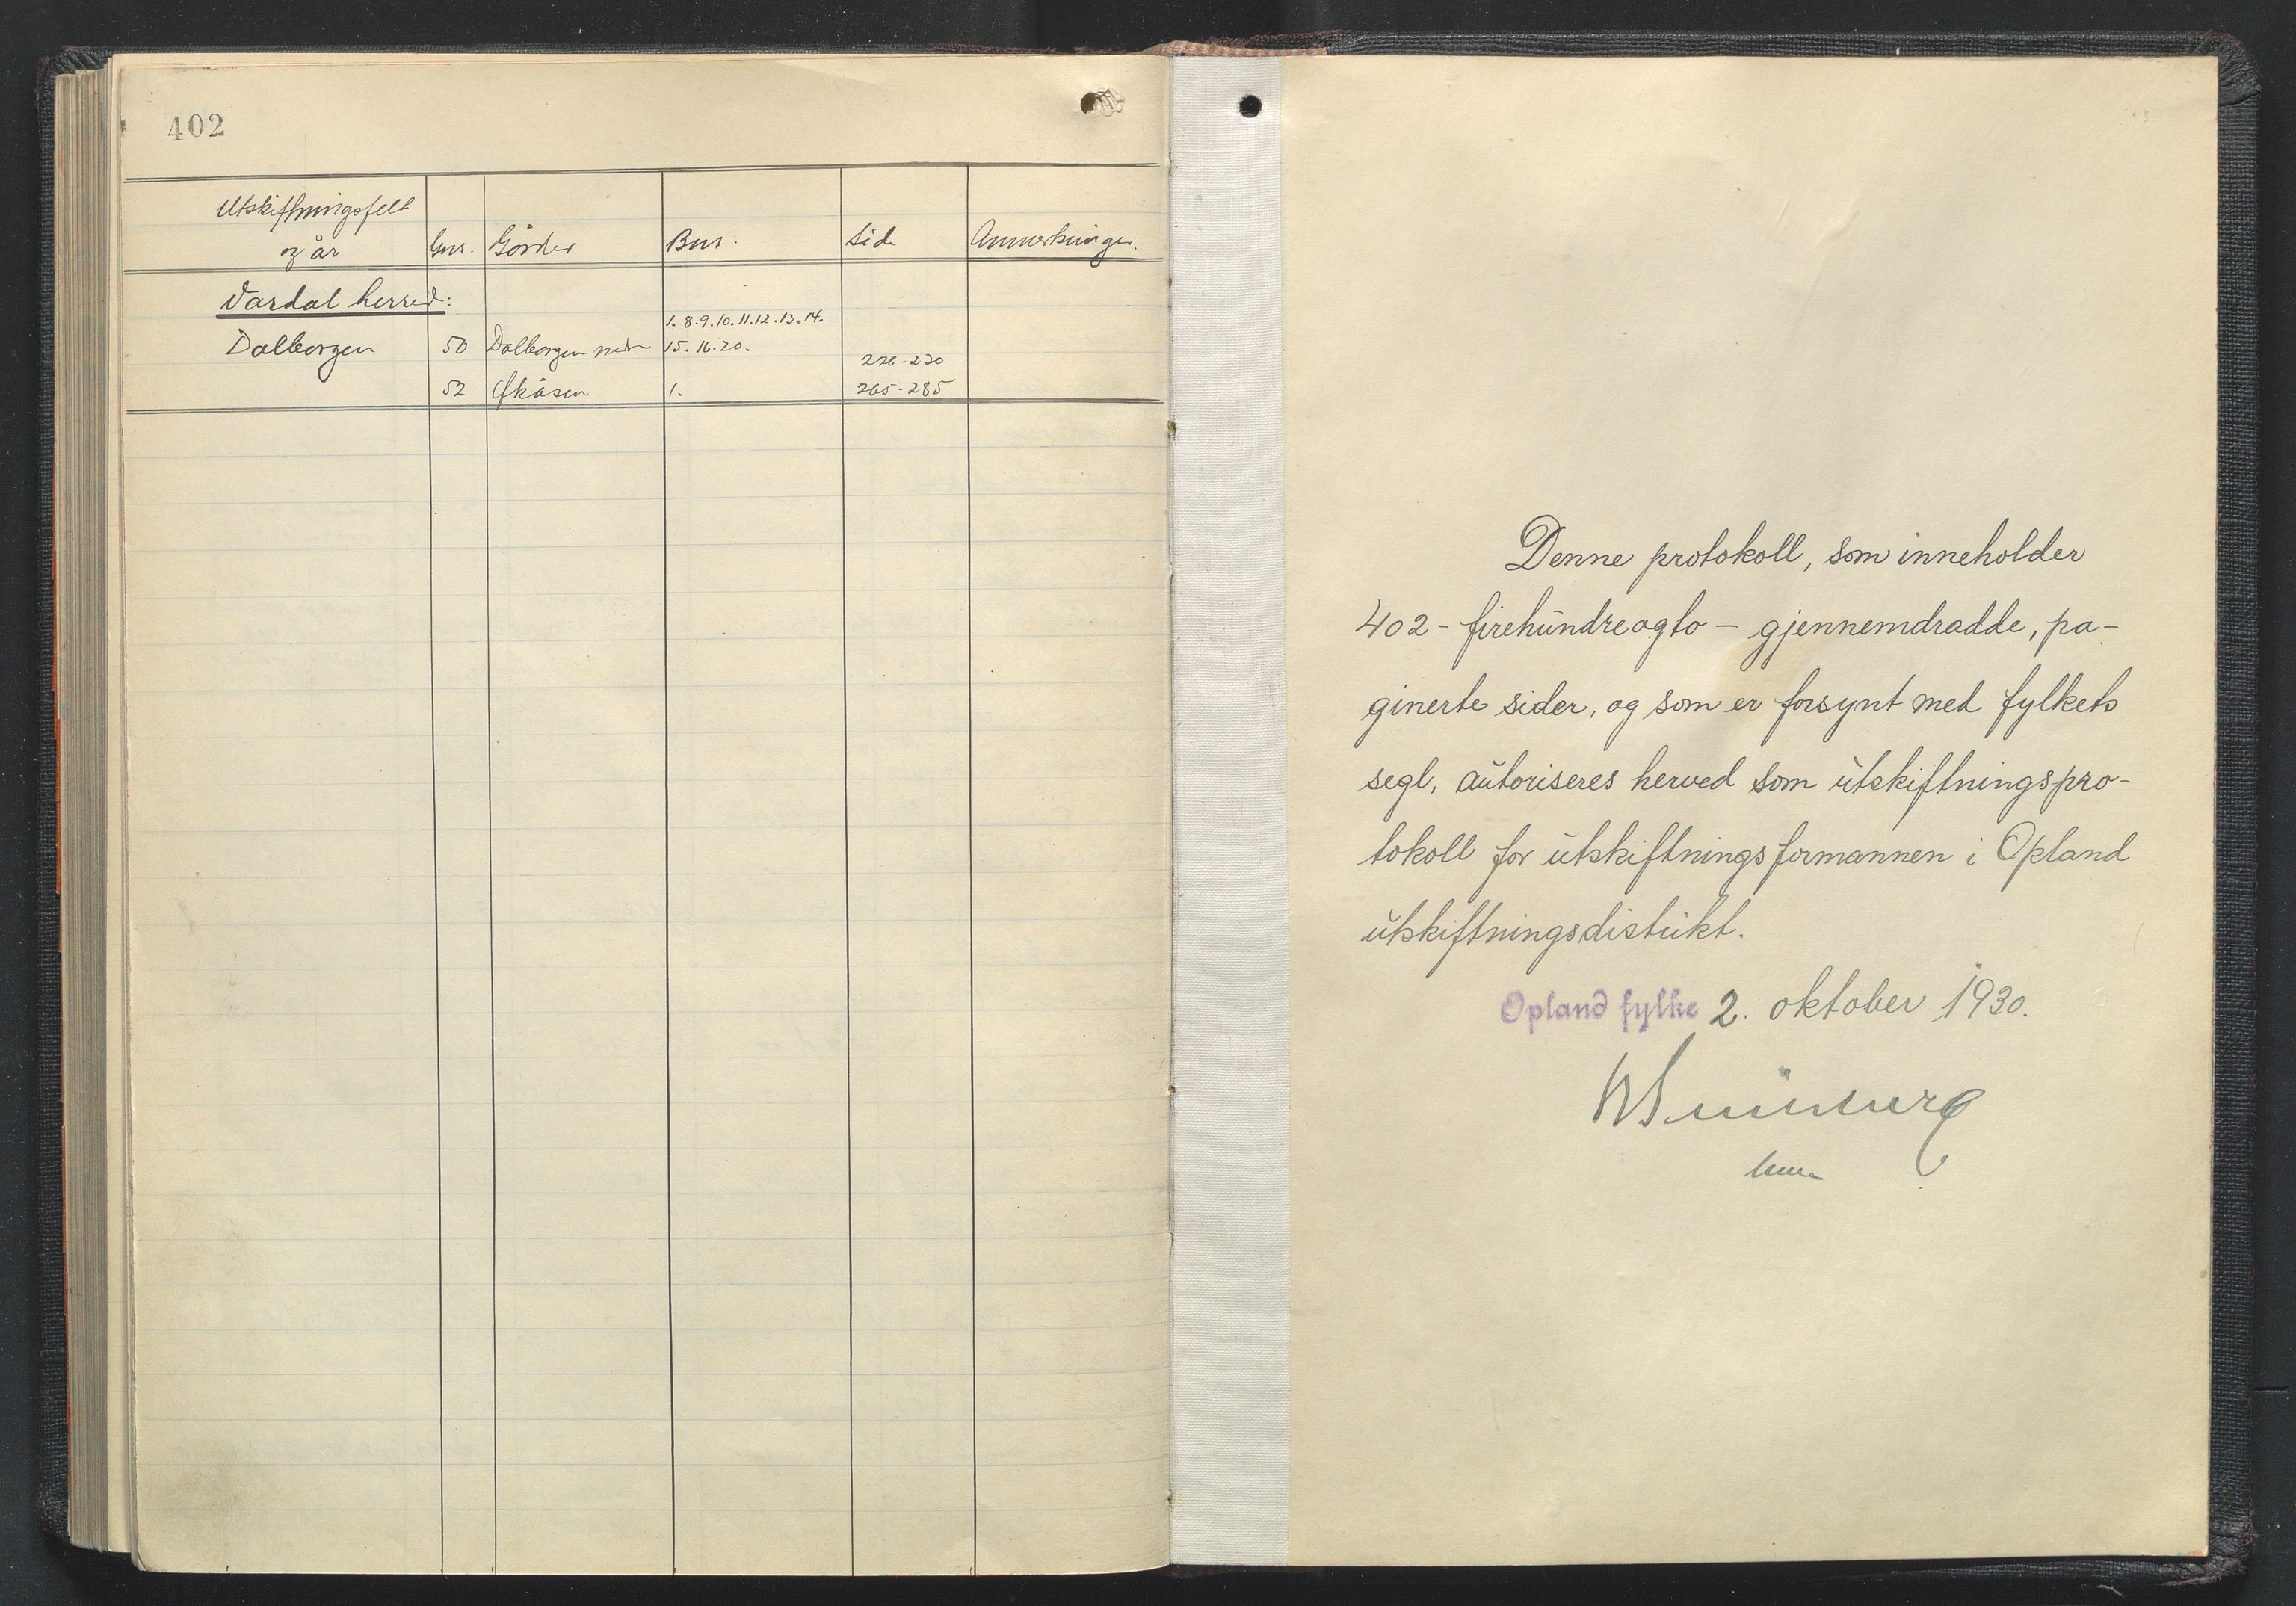 402
Utskiftningsfelt
og år
Gnr. Gårder Bnr. Side Anmerkninger.
Vardal herred:
1. 8. 9. 10. 11. 12. 13. 14.
Dalborgen 50 Dalborgen nedre 15. 16. 20.
226-230
52 Økåsen 1. 265-285
Denne protokoll, som inneholder
402 - firehundreogto - gjennemdradde, pa-
ginerte sider, og som er forsynt med fylkets
segl, autoriseres herved som utskiftningspro-
tokoll for utskiftningsformannen i Opland
utskiftningsdistrikt.
Opland fylke 2. oktober 1930.